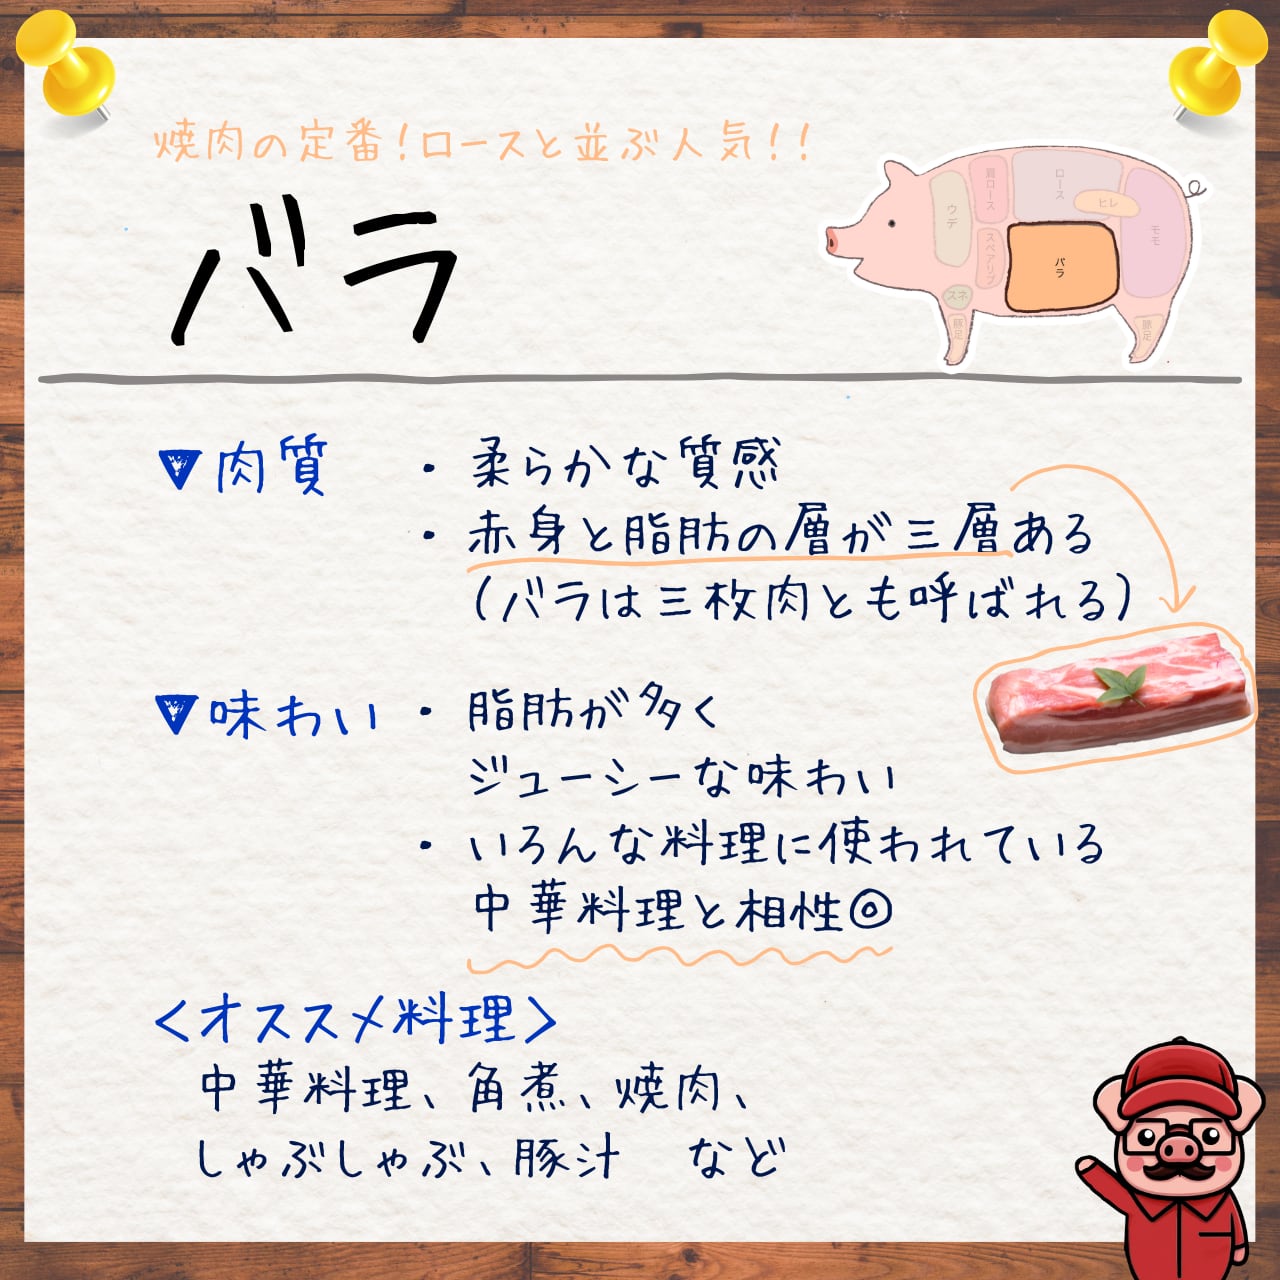 焼肉の定番！ロースと並ぶ人気！！
バラ
ウデ
肩ロース
ロース
ヒレ
モモ
スペアリブ
バラ
スネ
豚足
豚足
▼肉質
・柔らかな質感
・赤身と脂肪の層が三層ある
（バラは三枚肉とも呼ばれる）
▼味わい
・脂肪が多く
ジューシーな味わい
・いろんな料理に使われている
中華料理と相性◎
＜オススメ料理＞
中華料理、角煮、焼肉、
しゃぶしゃぶ、豚汁　など